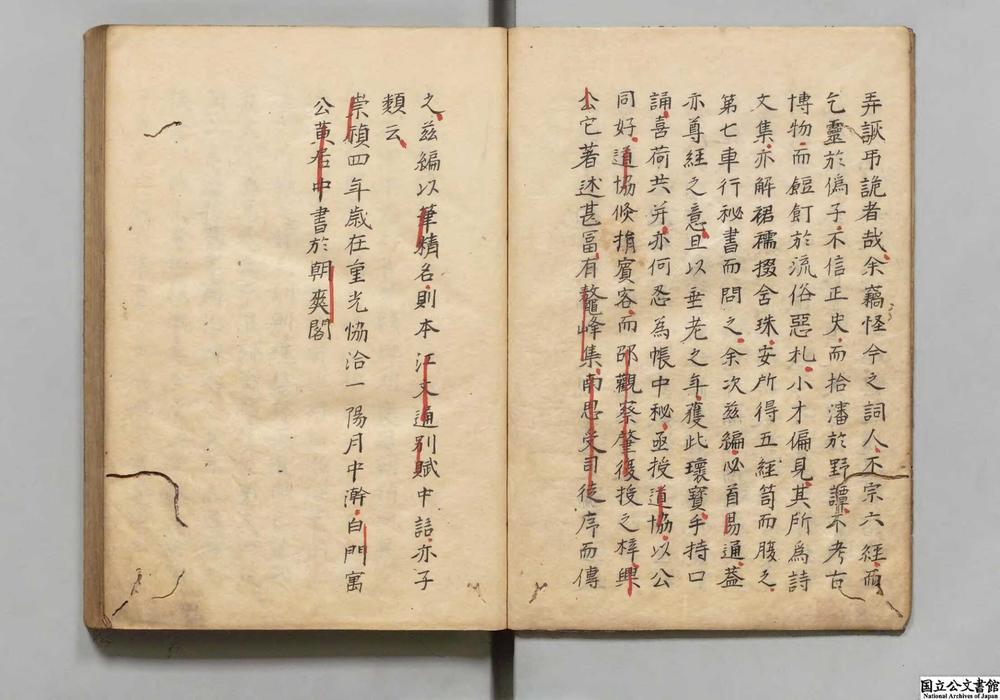 弄詼弔詭者哉余竊怪今之詞人不宗六經而
乞靈於僞子不信正史而拾瀋於野譚不考古
博物而餖飣於流俗惡札小才偏見其所為詩
文集亦解裙襦掇含珠安所得五經笥而腹之
第七車行秘書而問之余次茲編必首易通蓋
亦尊經之意且以垂老之年獲此瓌寳手持口
誦喜荷共并亦何忍為帳中秘亟授道協以公
同好道協倏捐賓客而邵觀蔡肇復授之梓興
公它著述甚冨有鼇峰集南思受司徒序而傳
之茲編以筆精名則本江文通别賦中語亦子
類云
崇禎四年歲在重光恊洽一陽月中澣白門寓
公黄居中書於朝爽閣
国立公文書館
National Archives of Japan